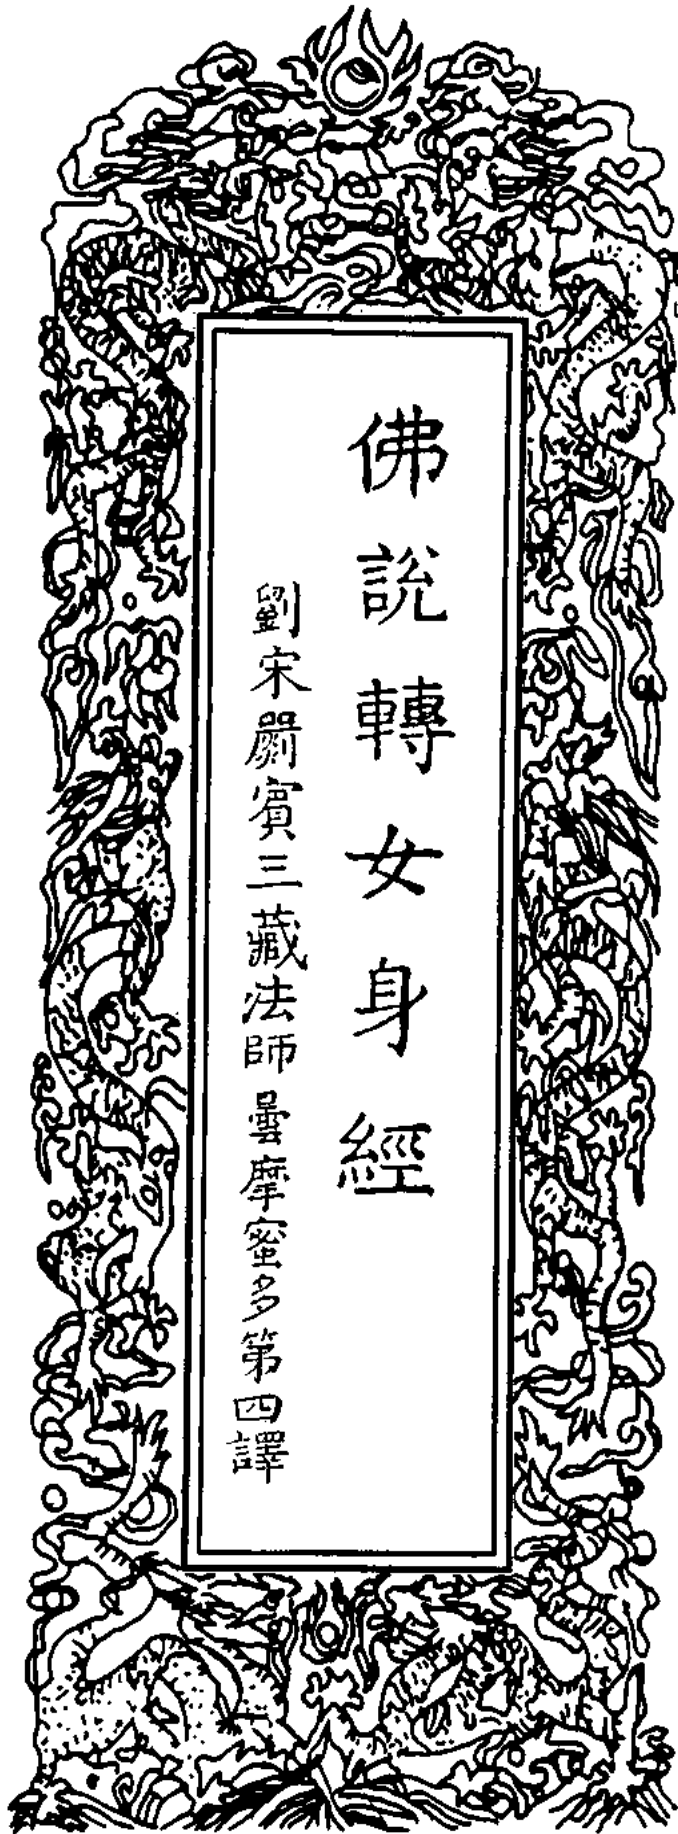 佛說轉女身經
劉宋罽賓三藏法師曇摩蜜多第四譯